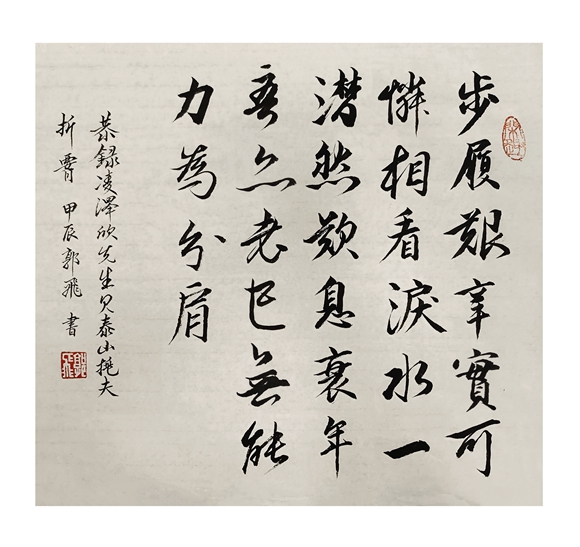 步履艱辛實可
憐相看淚水一
潸然歎息衰年
吾亦老已無能
力為分肩
恭錄凌澤欣先生見泰山挑夫
折 甲辰郭飛書